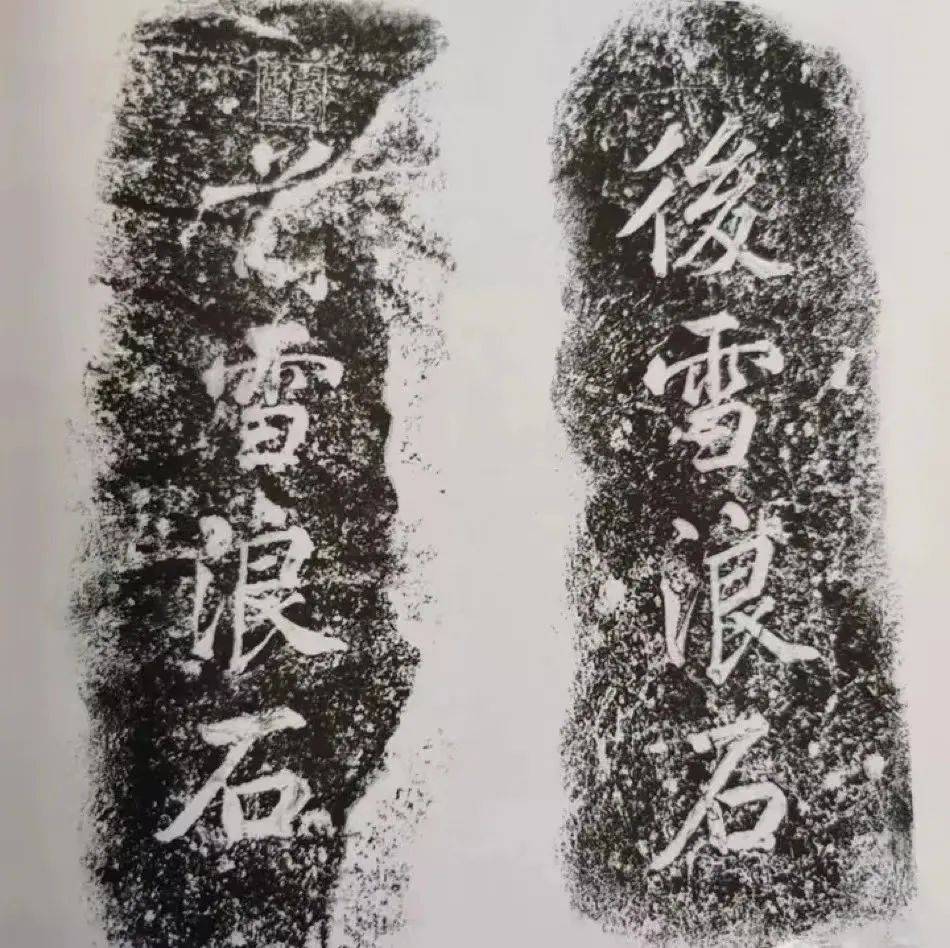 後雪浪石
雪浪石